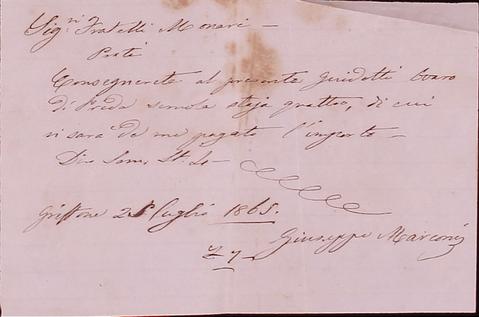 Sig.ri Fratelli Monari —
Prati
Consegnerete al presente Guidotti boaro
di Preda semola staja quattro, di cui
vi sarà da me pagato l'importo —
Griffone 25 Luglio 1865.
Giuseppe Marconi